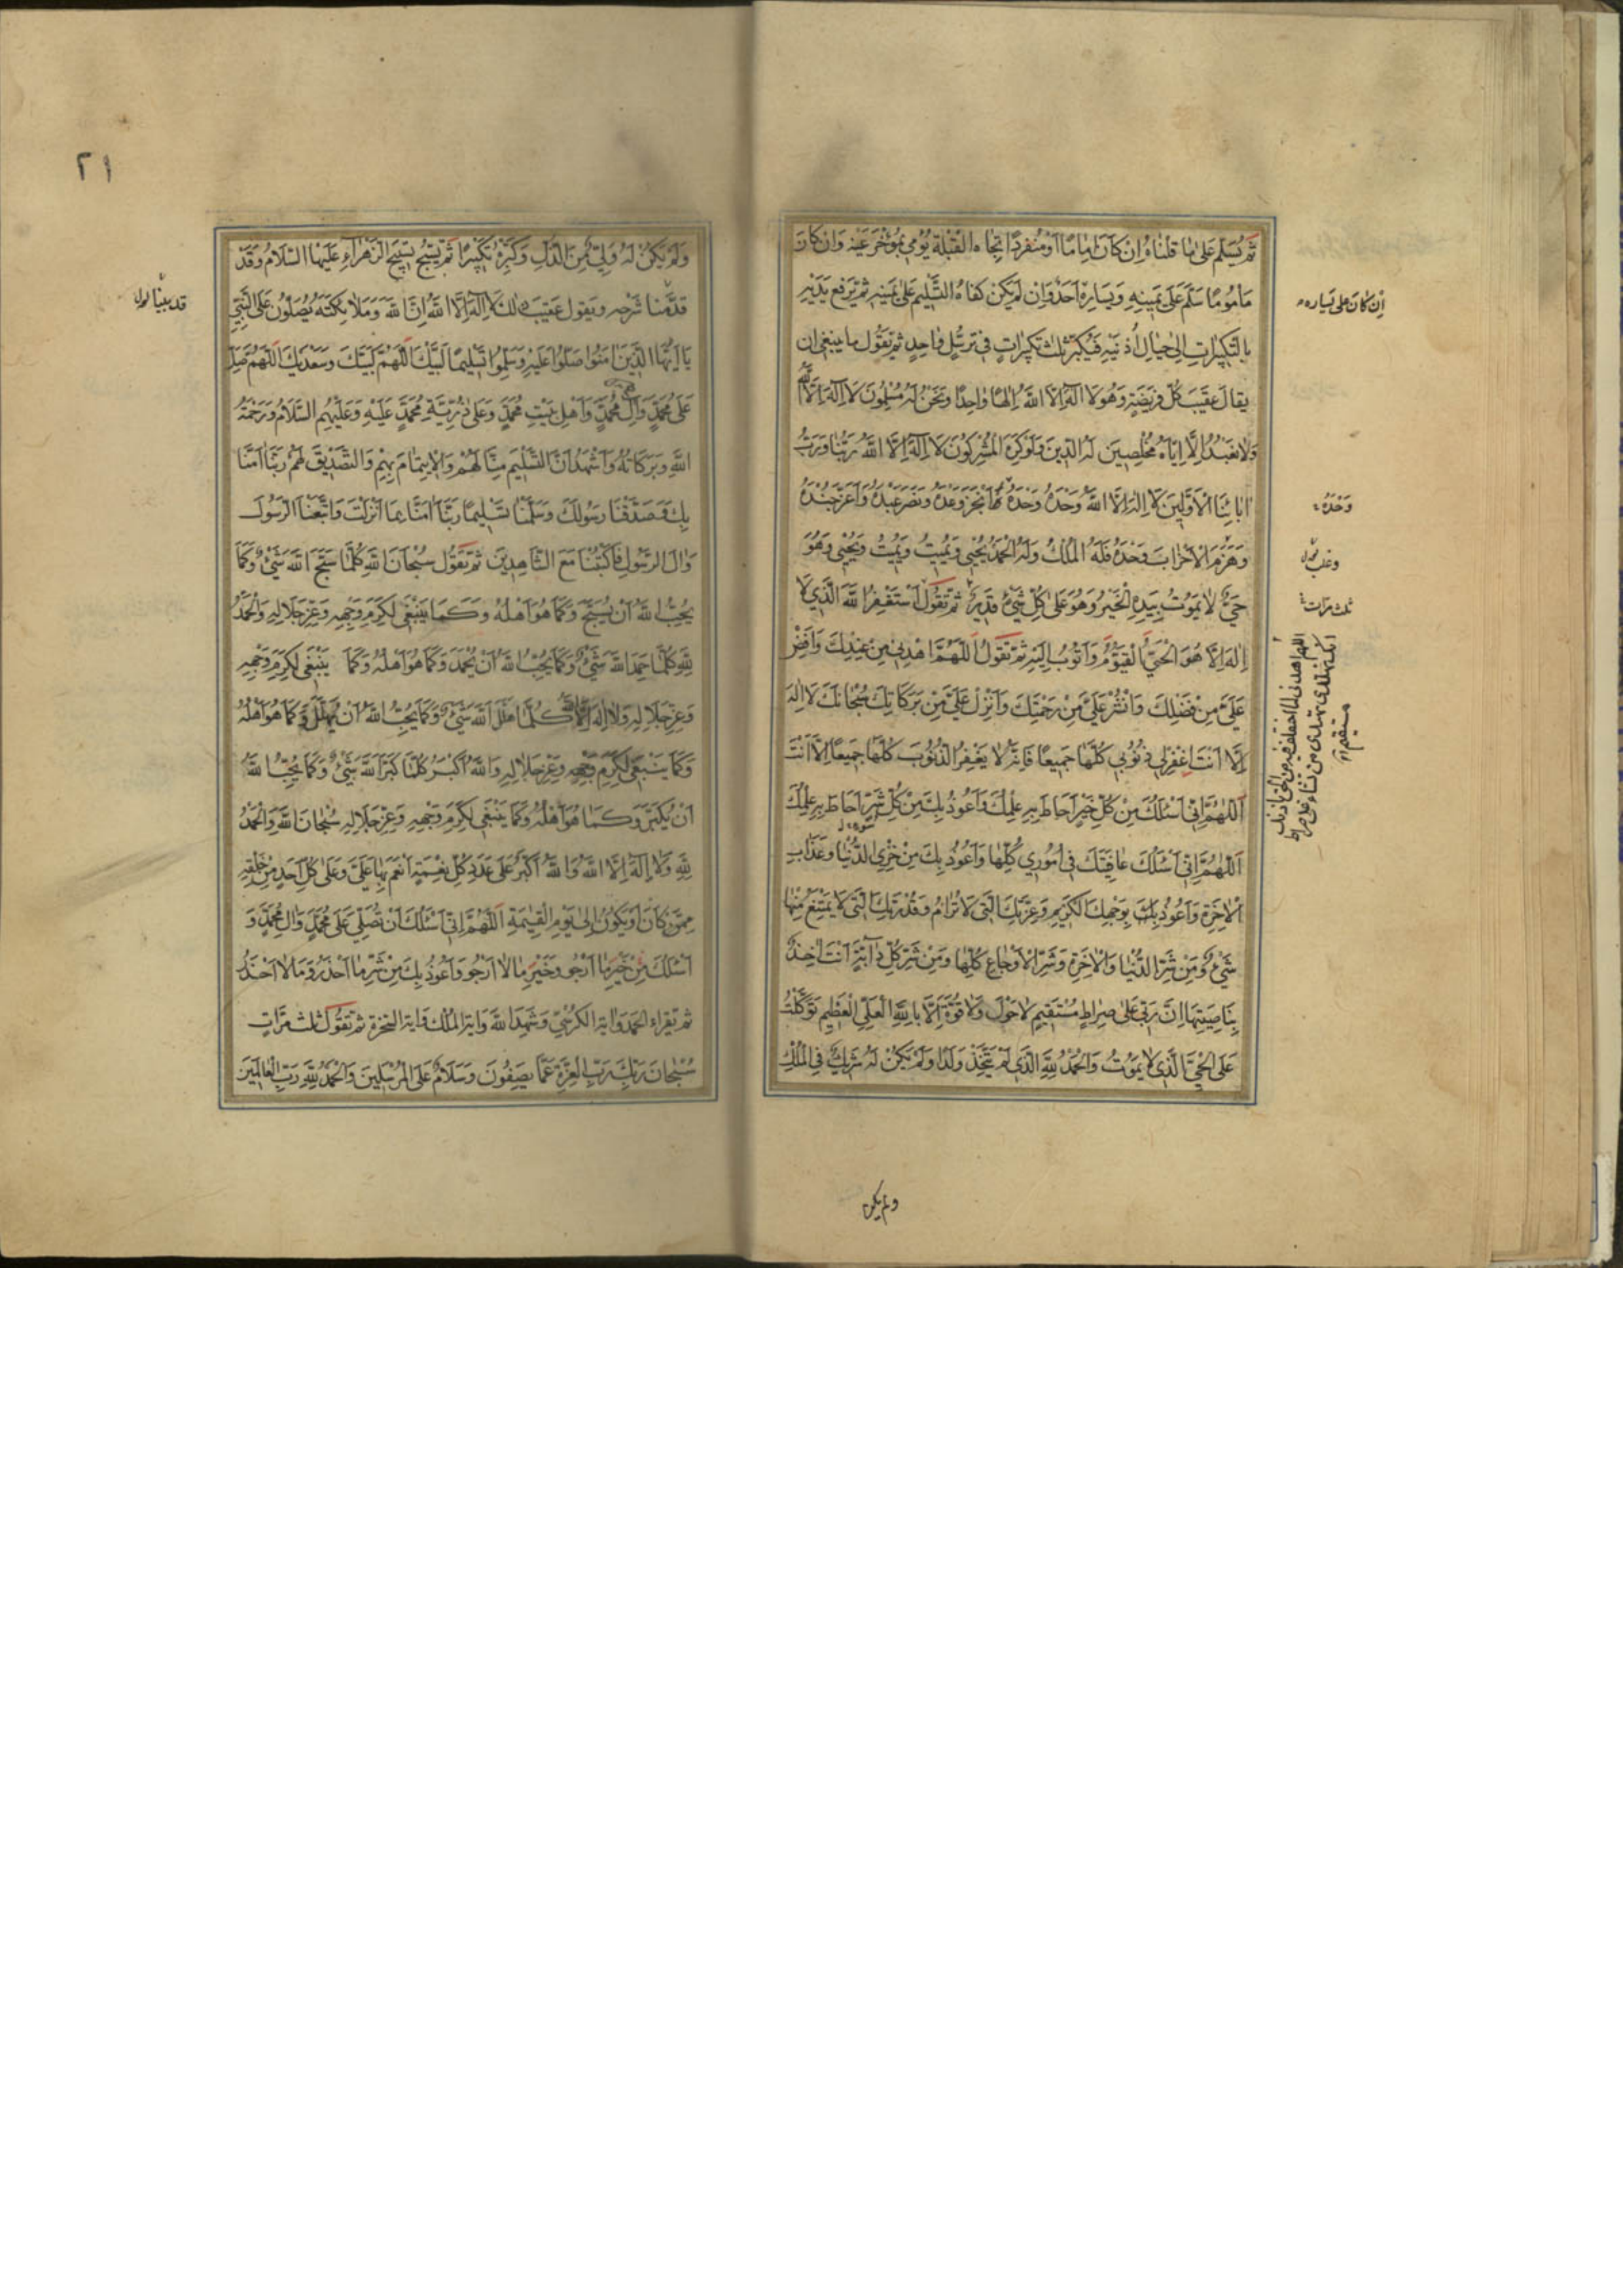 ثُمَّ يُسَلِّمُ عَلىٰ مٰا قُلنٰاهُ اِنْ كٰانَ اِمٰامًا اَوْ مُنْفَرِدًا تِجٰاه القِبْلَةِ يُؤمي بِمُؤْخَرِ عَيْنِه وَاِنْ كٰانَ
مَأمُومًا سَلَّمَ عَلىٰ يَمينِهِ وَيَسارِهِ اَحَدٌ وَاِنْ لَمْ يَكُنْ كَفاهُ التَّسْليم عَلىٰ يَمينِهِ ثُمَّ يَرفَع يَدَيْهِ
اِن كانَ على يَساره
بِالتَّكبيراتِ اِلىٰ حِيالِ اُذُنَيْهِ فَيُكَبِّر ثَلٰثَ تَكبيراتٍ في تَرَسُّلٍ واحِدٍ ثُمَّ تَقُول ما يَنبَغي اَن
يقالَ عَقيبَ كُلِّ فَريضَةٍ وَهُوَ لا اِلٰهَ اِلَّا اللهُ اِلٰهًا وٰاحِدًا وَنَحْنُ لَهُ مُسْلِمُونَ لا اِلٰهَ اِلَّا اللهُ
وَلا نَعْبُدُ اِلّا اِيّاهُ مُخْلِصينَ لَهُ الدّينَ وَلَوْ كَرِهَ المُشْرِكُونَ لا اِلٰهَ اِلَّا اللهُ رَبُّنا وَرَبُّ
اٰبائِنَا الْاَوَّلينَ لا اِلٰهَ اِلَّا اللهُ وَحْدَهُ وَحْدَهُ اَنْجَزَ وَعْدَهُ وَنَصَرَ عَبْدَهُ وَاَعَزَّ جُنْدَهُ
وَحْدَهُ
وَهَزَمَ الْاَحْزابَ وَحْدَهُ فَلَهُ المُلْكُ وَلَهُ الْحَمْدُ يُحْيي وَيُميتُ وَيُميتُ وَيُحْيي وَهُوَ
حَيٌّ لا يَمُوتُ بِيَدِهِ الْخَيْرُ وَهُوَ عَلىٰ كُلِّ شَيْءٍ قَديرٌ ثُمَّ تَقُولُ اَسْتَغْفِرُ اللهَ الَّذي لا
ثلث مرّات
اِلٰهَ اِلّا هُوَ الْحَيُّ الْقَيُّومُ وَاَتُوبُ اِلَيْهِ ثُمَّ تَقُولُ اَللّٰهُمَّ اهْدِني مِنْ عِنْدِكَ وَاَفِضْ
عَلَيَّ مِنْ فَضْلِكَ وَانْشُرْ عَلَيَّ مِنْ رَحْمَتِكَ وَاَنْزِلْ عَلَيَّ مِنْ بَرَكاتِكَ سُبْحانَكَ لا اِلٰهَ
اللهم اهدني لما اختلف فيه من الحق باذنك
انك تهدي من تشاء الى صراط
مستقيم
اِلّا اَنْتَ اغْفِرْ لي ذُنُوبي كُلَّها جَميعًا فَاِنَّهُ لا يَغْفِرُ الذُّنُوبَ كُلَّها جَميعًا اِلّا اَنْتَ
اَللّٰهُمَّ اِنّي اَسْئَلُكَ مِنْ كُلِّ خَيْرٍ اَحاطَ بِهِ عِلْمُكَ وَاَعُوذُ بِكَ مِنْ كُلِّ شَرٍّ اَحاطَ بِهِ عِلْمُكَ
اَللّٰهُمَّ اِنّي اَسْئَلُكَ عافِيَتَكَ في اُمُوري كُلِّها وَاَعُوذُ بِكَ مِنْ خِزْيِ الدُّنْيا وَعَذابِ
الْاٰخِرَةِ وَاَعُوذُ بِوَجْهِكَ الكَريمِ وَعِزَّتِكَ الَّتي لا تُرامُ وَقُدْرَتِكَ الَّتي لا يَمْتَنِعُ مِنْها
شَيْءٌ وَمِنْ شَرِّ الدُّنْيا وَالْاٰخِرَةِ وَشَرِّ الْاَوْجاعِ كُلِّها وَمِنْ شَرِّ كُلِّ دابَّةٍ اَنْتَ اٰخِذٌ
بِناصِيَتِها اِنَّ رَبّي عَلىٰ صِراطٍ مُسْتَقيمٍ لا حَوْلَ وَلا قُوَّةَ اِلّا بِاللهِ الْعَلِيِّ الْعَظيمِ تَوَكَّلْتُ
عَلَى الْحَيِّ الَّذي لا يَمُوتُ وَالْحَمْدُ لِلّٰهِ الَّذي لَمْ يَتَّخِذْ وَلَدًا وَلَمْ يَكُنْ لَهُ شَريكٌ فِي الْمُلْكِ
ولم يكن
٢١
وَلَمْ يَكُنْ لَهُ وَلِيٌّ مِنَ الذُّلِّ وَكَبِّرْهُ تَكْبيرًا ثُمَّ يُسَبِّحُ تَسْبيحَ الزَّهْراءِ عَلَيْهَا السَّلامُ وَقَدْ
قَدَّمْنا شَرْحه وَيَقول عَقيبَ ذٰلِكَ لا اِلٰهَ اِلَّا اللهُ اِنَّ اللهَ وَمَلائِكَتَهُ يُصَلُّونَ عَلَى النَّبِيِّ
قد بينا
يا اَيُّهَا الَّذينَ اٰمَنُوا صَلُّوا عَلَيْهِ وَسَلِّمُوا تَسْليمًا لَبَّيْكَ اَللّٰهُمَّ لَبَّيْكَ وَسَعْدَيْكَ اَللّٰهُمَّ صَلِّ
عَلىٰ مُحَمَّدٍ وَاٰلِ مُحَمَّدٍ وَاَهْلِ بَيْتِ مُحَمَّدٍ وَعَلىٰ ذُرِّيَّةِ مُحَمَّدٍ عَلَيْهِ وَعَلَيْهِمُ السَّلامُ وَرَحْمَةُ
اللهِ وَبَرَكاتُهُ وَاَشْهَدُ اَنَّ التَّسْليمَ مِنّا لَهُمْ وَالْاِيتِمامَ بِهِمْ وَالتَّصْديقَ لَهُمْ رَبَّنا اٰمَنّا
بِكَ وَصَدَّقْنا رَسُولَكَ وَسَلَّمْنا تَسْليمًا رَبَّنا اٰمَنّا بِما اَنْزَلْتَ وَاتَّبَعْنَا الرَّسُولَ
وَاٰلَ الرَّسُولِ فَاكْتُبْنا مَعَ الشّاهِدينَ ثُمَّ تَقُول سُبْحانَ اللهِ كُلَّما سَبَّحَ اللهَ شَيْءٌ وَكَما
يُحِبُّ اللهُ اَنْ يُسَبَّحَ وَكَما هُوَ اَهْلُهُ وَكَما يَنْبَغي لِكَرَمِ وَجْهِهِ وَعِزِّ جَلالِهِ وَالْحَمْدُ
لِلّٰهِ كُلَّما حَمِدَ اللهَ شَيْءٌ وَكَما يُحِبُّ اللهُ اَنْ يُحْمَدَ وَكَما هُوَ اَهْلُهُ وَكَما يَنْبَغي لِكَرَمِ وَجْهِهِ
وَعِزِّ جَلالِهِ وَلا اِلٰهَ اِلَّا اللهُ كُلَّما هَلَّلَ اللهَ شَيْءٌ وَكَما يُحِبُّ اللهُ اَنْ يُهَلَّلَ وَكَما هُوَ اَهْلُهُ
وَكَما يَنْبَغي لِكَرَمِ وَجْهِهِ وَعِزِّ جَلالِهِ وَاللهُ اَكْبَرُ كُلَّما كَبَّرَ اللهَ شَيْءٌ وَكَما يُحِبُّ اللهُ
اَنْ يُكَبَّرَ وَكَما هُوَ اَهْلُهُ وَكَما يَنْبَغي لِكَرَمِ وَجْهِهِ وَعِزِّ جَلالِهِ سُبْحانَ اللهِ وَالْحَمْدُ
لِلّٰهِ وَلا اِلٰهَ اِلَّا اللهُ وَاللهُ اَكْبَرُ عَلىٰ عَدَدِ كُلِّ نِعْمَةٍ اَنْعَمَ بِها عَلَيَّ وَعَلىٰ كُلِّ اَحَدٍ مِنْ خَلْقِهِ
مِمَّنْ كانَ اَوْ يَكُونُ اِلىٰ يَوْمِ الْقِيٰمَةِ اَللّٰهُمَّ اِنّي اَسْئَلُكَ اَنْ تُصَلِّيَ عَلىٰ مُحَمَّدٍ وَاٰلِ مُحَمَّدٍ وَ
اَسْئَلُكَ مِنْ خَيْرِ ما اَرْجُو وَخَيْرِ ما لا اَرْجُو وَاَعُوذُ بِكَ مِنْ شَرِّ ما اَحْذَرُ وَما لا اَحْذَرُ
ثم تقراء الحمد واية الكرسي وَشَهِدَ اللهُ وَاية الملك واية السخرة ثم تَقُول ثلٰث مرّاتٍ
سُبْحانَ رَبِّكَ رَبِّ الْعِزَّةِ عَمّا يَصِفُونَ وَسَلامٌ عَلَى الْمُرْسَلينَ وَالْحَمْدُ لِلّٰهِ رَبِّ الْعالَمينَ